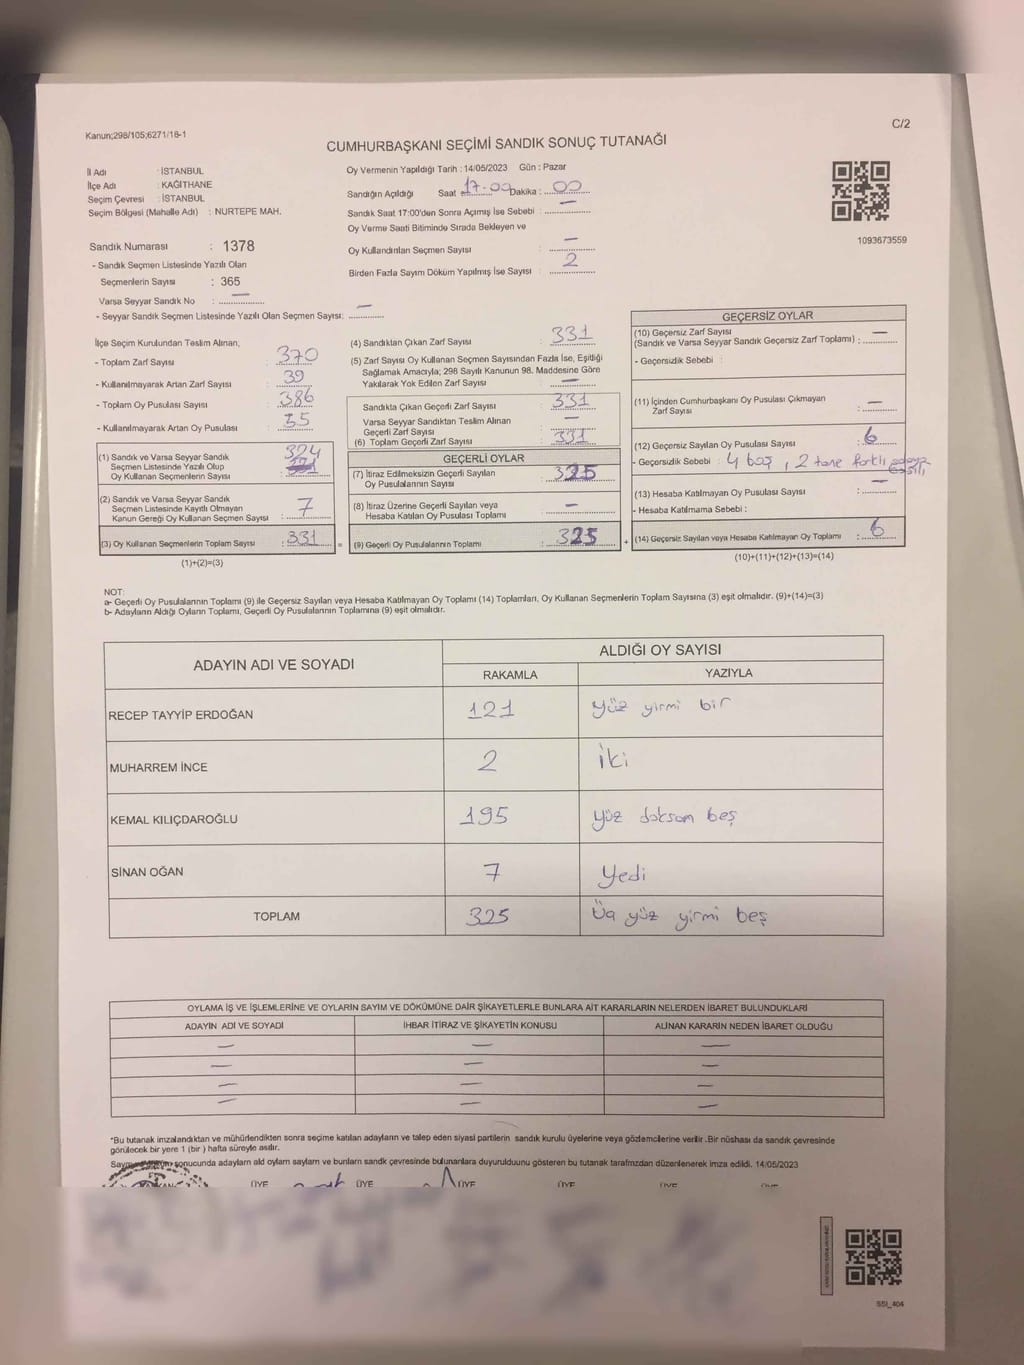 Kanun;298/105;6271/18-1
C/2
CUMHURBAŞKANI SEÇİMİ SANDIK SONUÇ TUTANAĞI
İl Adı : İSTANBUL
İlçe Adı : KAĞITHANE
Seçim Çevresi : İSTANBUL
Seçim Bölgesi (Mahalle Adı) : NURTEPE MAH.
Oy Vermenin Yapıldığı Tarih : 14/05/2023 Gün : Pazar
Sandığın Açıldığı Saat : 17.00 Dakika : 00
Sandık Saat 17:00'den Sonra Açımış İse Sebebi : —
Oy Verme Saati Bitiminde Sırada Bekleyen ve
Oy Kullandırılan Seçmen Sayısı : —
Birden Fazla Sayım Döküm Yapılmış İse Sayısı : 2
1093673559
Sandık Numarası : 1378
- Sandık Seçmen Listesinde Yazılı Olan
Seçmenlerin Sayısı : 365
Varsa Seyyar Sandık No : —
- Seyyar Sandık Seçmen Listesinde Yazılı Olan Seçmen Sayısı: —
İlçe Seçim Kurulundan Teslim Alınan;
- Toplam Zarf Sayısı : 370
- Kullanılmayarak Artan Zarf Sayısı : 39
- Toplam Oy Pusulası Sayısı : 386
- Kullanılmayarak Artan Oy Pusulası : 55
(1) Sandık ve Varsa Seyyar Sandık
Seçmen Listesinde Yazılı Olup
Oy Kullanan Seçmenlerin Sayısı : 324
(2) Sandık ve Varsa Seyyar Sandık
Seçmen Listesinde Kayıtlı Olmayan
Kanun Gereği Oy Kullanan Seçmen Sayısı : 7
(3) Oy Kullanan Seçmenlerin Toplam Sayısı : 331
(1)+(2)=(3)
=
(4) Sandıktan Çıkan Zarf Sayısı : 331
(5) Zarf Sayısı Oy Kullanan Seçmen Sayısından Fazla İse, Eşitliği
Sağlamak Amacıyla; 298 Sayılı Kanunun 98. Maddesine Göre
Yakılarak Yok Edilen Zarf Sayısı : —
Sandıkta Çıkan Geçerli Zarf Sayısı : 331
Varsa Seyyar Sandıktan Teslim Alınan
Geçerli Zarf Sayısı : —
(6) Toplam Geçerli Zarf Sayısı : 331
GEÇERLİ OYLAR
(7) İtiraz Edilmeksizin Geçerli Sayılan
Oy Pusulalarının Sayısı : 325
(8) İtiraz Üzerine Geçerli Sayılan veya
Hesaba Katılan Oy Pusulası Toplamı : —
(9) Geçerli Oy Pusulalarının Toplamı : 325
+
GEÇERSİZ OYLAR
(10) Geçersiz Zarf Sayısı
(Sandık ve Varsa Seyyar Sandık Geçersiz Zarf Toplamı) : —
- Geçersizlik Sebebi :
(11) İçinden Cumhurbaşkanı Oy Pusulası Çıkmayan
Zarf Sayısı : —
(12) Geçersiz Sayılan Oy Pusulası Sayısı : 6
- Geçersizlik Sebebi : 4 boş, 2 tane farklı
(13) Hesaba Katılmayan Oy Pusulası Sayısı : —
- Hesaba Katılmama Sebebi :
(14) Geçersiz Sayılan veya Hesaba Katılmayan Oy Toplamı : 6
(10)+(11)+(12)+(13)=(14)
NOT:
a- Geçerli Oy Pusulalarının Toplamı (9) ile Geçersiz Sayılan veya Hesaba Katılmayan Oy Toplamı (14) Toplamları, Oy Kullanan Seçmenlerin Toplam Sayısına (3) eşit olmalıdır. (9)+(14)=(3)
b- Adayların Aldığı Oyların Toplamı, Geçerli Oy Pusulalarının Toplamına (9) eşit olmalıdır.
ADAYIN ADI VE SOYADI
ALDIĞI OY SAYISI
RAKAMLA YAZIYLA
RECEP TAYYİP ERDOĞAN 121 yüz yirmi bir
MUHARREM İNCE 2 iki
KEMAL KILIÇDAROĞLU 195 yüz doksan beş
SİNAN OĞAN 7 yedi
TOPLAM 325 Üç yüz yirmi beş
OYLAMA İŞ VE İŞLEMLERİNE VE OYLARIN SAYIM VE DÖKÜMÜNE DAİR ŞİKAYETLERLE BUNLARA AİT KARARLARIN NELERDEN İBARET BULUNDUKLARI
ADAYIN ADI VE SOYADI İHBAR İTİRAZ VE ŞİKAYETİN KONUSU ALINAN KARARIN NEDEN İBARET OLDUĞU
— — —
— — —
— — —
— — —
*Bu tutanak imzalandıktan ve mühürlendikten sonra seçime katılan adayların ve talep eden siyasi partilerin sandık kurulu üyelerine veya gözlemcilerine verilir .Bir nüshası da sandık çevresinde
görülecek bir yere 1 (bir ) hafta süreyle asılır.
sonucunda adayların ald oyların sayların ve bunların sandk çevresinde bulunanlara duyurulduunu gösteren bu tutanak tarafmzdan düzenlenerek imza edildi. 14/05/2023
ÜYE ÜYE ÜYE ÜYE ÜYE
SSI_404